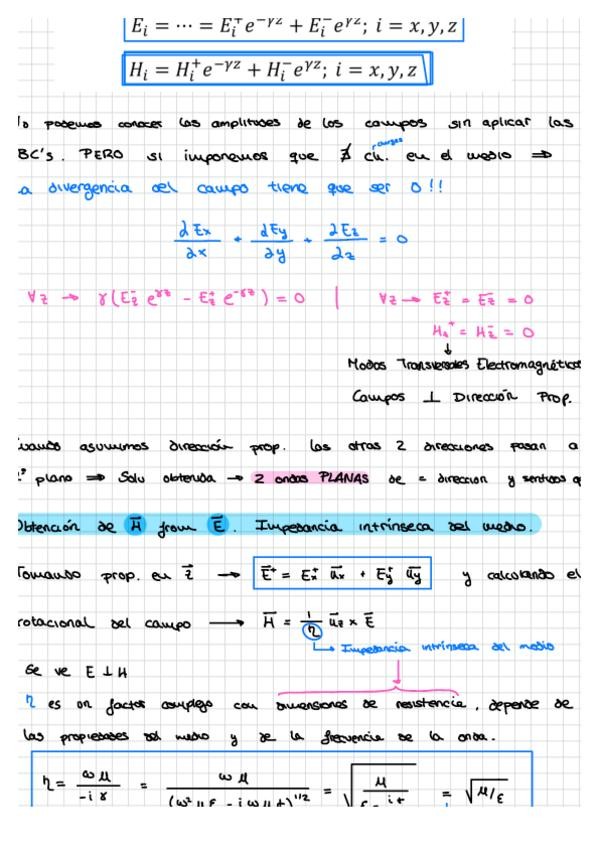 E_i = ⋯ = E_i^+ e^{-γz} + E_i^- e^{γz}; i = x, y, z
H_i = H_i^+ e^{-γz} + H_i^- e^{γz}; i = x, y, z
podemos conocer las amplitudes de los campos sin aplicar las
cargas
BC's. PERO si imponemos que ∄ ch. en el medio ⇒
a divergencia del campo tiene que ser 0!!
∂Ex/∂x + ∂Ey/∂y + ∂Ez/∂z = 0
∀z → γ(E_z^- e^{γz} - E_z^+ e^{-γz}) = 0 | ∀z → E_z^+ = E_z^- = 0
H_z^+ = H_z^- = 0
Modos Transversales Electromagnéticos
Campos ⊥ Dirección Prop.
uando asumimos dirección prop. las otras 2 direcciones pasan a
plano ⇒ Solu obtenida → 2 ondas PLANAS de = direccion y sentidos
Obtención de H̄ from Ē. Impedancia intrínseca del medio.
Tomando prop. en z⃗ → E⃗^+ = E_x^+ ū_x + E_y^+ ū_y y calculando el
rotacional del campo → H̄ = 1/η ū_z × Ē
↳ Impedancia intrínseca del medio
Se ve E ⊥ H
η es un factor complejo con dimensiones de resistencia, depende de
las propiedades del medio y de la frecuencia de la onda.
η = ωμ/(-iγ) = ωμ/(ω²με - iωμσ)^{1/2} = √(μ/ = √(μ/ε)